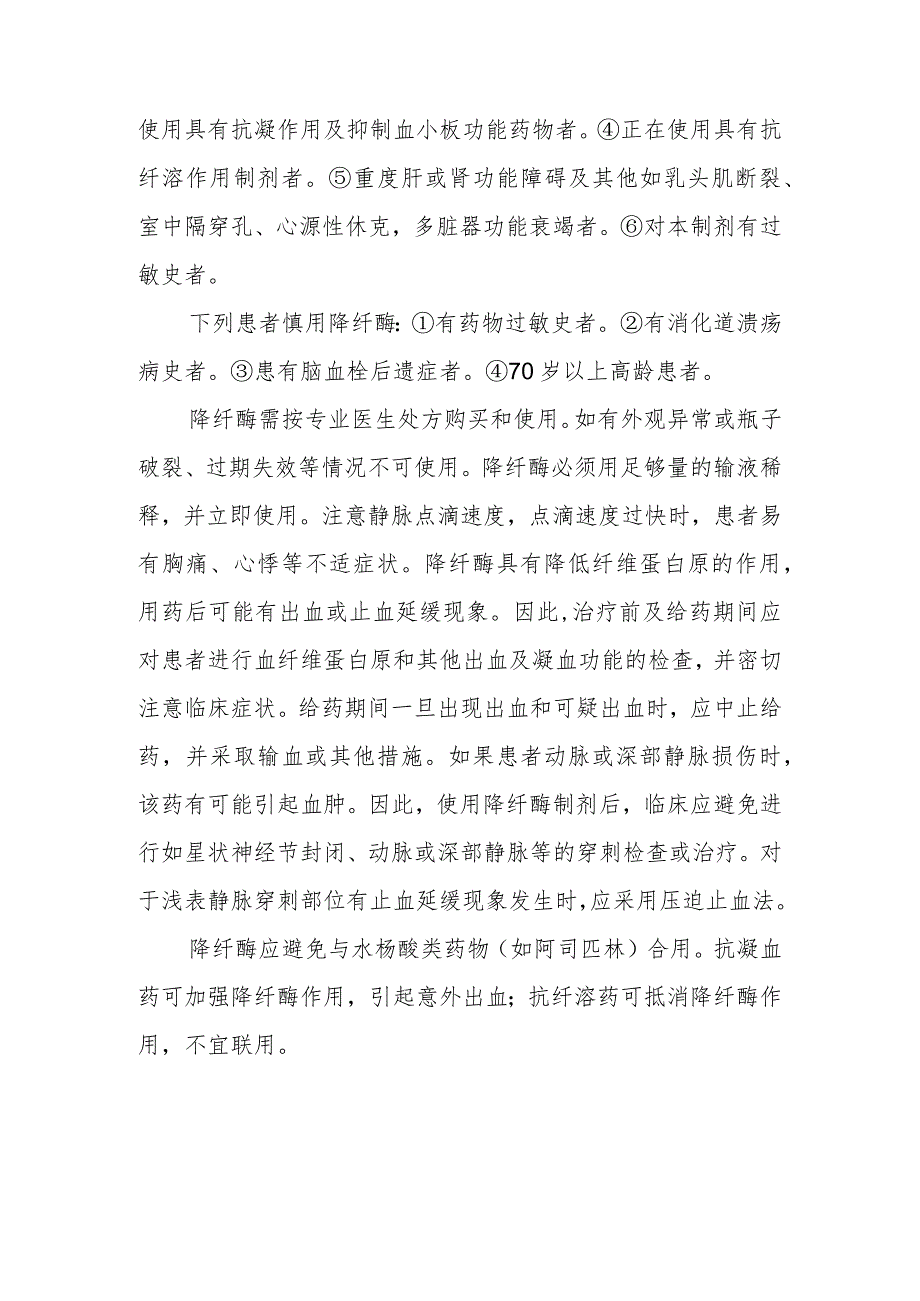 使用具有抗凝作用及抑制血小板功能药物者。④正在使用具有抗
纤溶作用制剂者。⑤重度肝或肾功能障碍及其他如乳头肌断裂、
室中隔穿孔、心源性休克，多脏器功能衰竭者。⑥对本制剂有过
敏史者。
下列患者慎用降纤酶：①有药物过敏史者。②有消化道溃疡
病史者。③患有脑血栓后遗症者。④70 岁以上高龄患者。
降纤酶需按专业医生处方购买和使用。如有外观异常或瓶子
破裂、过期失效等情况不可使用。降纤酶必须用足够量的输液稀
释，并立即使用。注意静脉点滴速度，点滴速度过快时，患者易
有胸痛、心悸等不适症状。降纤酶具有降低纤维蛋白原的作用，
用药后可能有出血或止血延缓现象。因此,治疗前及给药期间应
对患者进行血纤维蛋白原和其他出血及凝血功能的检查，并密切
注意临床症状。给药期间一旦出现出血和可疑出血时，应中止给
药，并采取输血或其他措施。如果患者动脉或深部静脉损伤时，
该药有可能引起血肿。因此，使用降纤酶制剂后，临床应避免进
行如星状神经节封闭、动脉或深部静脉等的穿刺检查或治疗。对
于浅表静脉穿刺部位有止血延缓现象发生时,应采用压迫止血法。
降纤酶应避免与水杨酸类药物（如阿司匹林）合用。抗凝血
药可加强降纤酶作用，引起意外出血；抗纤溶药可抵消降纤酶作
用，不宜联用。